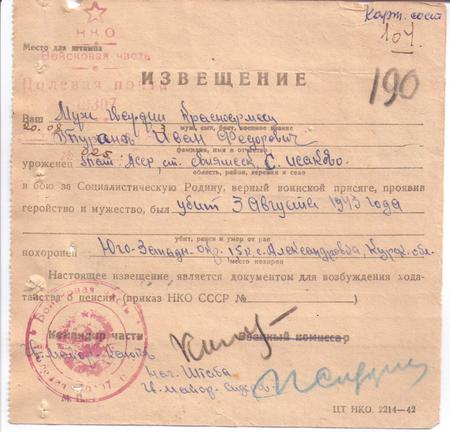 Карт.
107.
НКО
Место для штампа
Войсковая часть
Полевая почта
ИЗВЕЩЕНИЕ
190
Ваш Муж Гвардии Красноармеец
муж, сын, брат, военное звание
20.08
Иван Федорович
фамилия, имя и отчество
уроженец Тат. Асср, ст. Свияжск, С. Исаково.
область, район, деревня и село
в бою за Социалистическую Родину, верный воинской присяге, проявив
геройство и мужество, был убит 3 Августа 1943 года
убит, ранен и умер от ран
похоронен Юго-Западн. окр. с. Александровка Курск. обл.
место похорон
Настоящее извещение является документом для возбуждения хода-
тайства о пенсии (приказ НКО СССР №
Командир части
Военный комиссар
Нач. Штаба
М. П.
ЦТ НКО. 2214—42